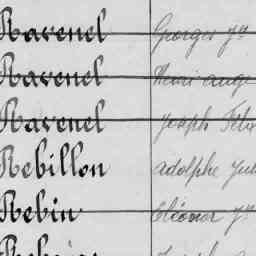 Ravenel Georges J^h
Ravenel Henri Auge
Ravenel Joseph Félix
Rebillon Adolphe Jul
Rebin Eléonor J^h